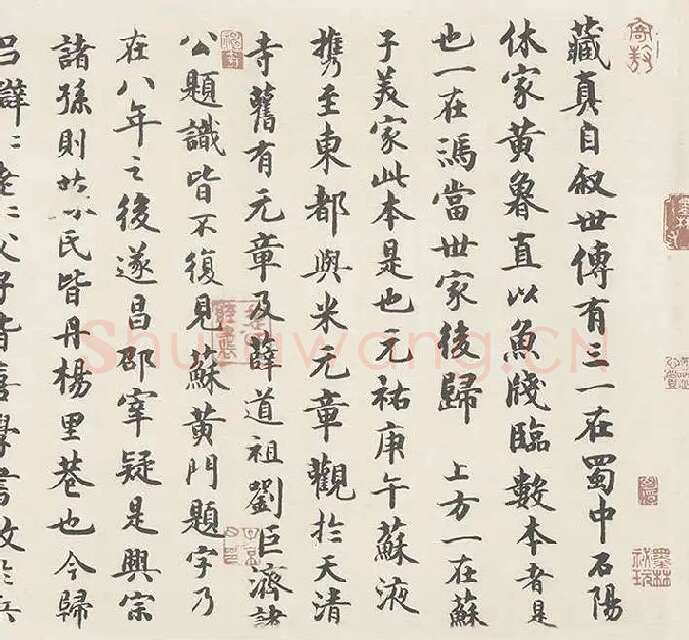 藏真自敘世傳有三一在蜀中石陽
休家黃魯直以魚牋臨數本者是
也一在馮當世家後歸 上方一在蘇
子美家此本是也元祐庚午蘇液
攜至東都與米元章觀於天清
寺舊有元章及薛道祖劉巨濟諸
公題識皆不復見蘇黃門題字乃
在八年之後遂昌邵宰疑是興宗
諸孫則蘇氏皆丹楊里巷也今歸
呂辯二老二父子皆喜學書故於兵
Shufawang.CN